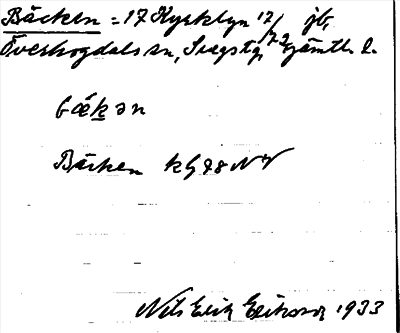 Bäcken = 17 Kyrkbyn 17/ jb,
Överhogdals sn, Svegs tg, Jämtl. l.
bä́kən
Bäcken kG 98 NV
Nils Erik Eriksson 1933